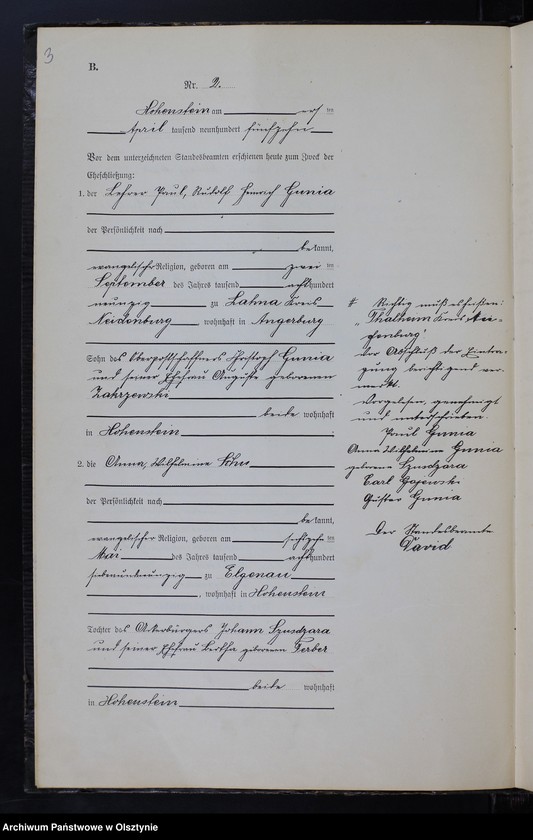 3
B.
Nr. 2.
Hohenstein am
April tausend neunhundert fünfzehn
Vor dem unterzeichneten Standesbeamten erschienen heute zum Zweck der
Eheschließung:
1. der Lehrer Paul, Rudolf Heinrich Gunia
der Persönlichkeit nach
bekannt,
evangelischer Religion, geboren am zwei ten
September des Jahres tausend achthundert
neunzig zu Lahna Kreis
Neidenburg wohnhaft in Angerburg
Sohn des Gunia
und seiner Ehefrau Auguste geborenen
Zakrzewski
beide wohnhaft
in Hohenstein
2. die Anna, Wilhelmine
der Persönlichkeit nach
bekannt,
evangelischer Religion, geboren am ten
Mai des Jahres tausend achthundert
siebenundneunzig zu Elgenau
, wohnhaft in Hohenstein
Tochter des Ackerbürgers Johann Szusdzara
und seiner Ehefrau Bertha geborenen Ferber
beide wohnhaft
in Hohenstein
Richtig muß es heißen:
"Thalheim Kreis Nei-
denburg"
Vor Abschluß der Eintra-
gung berichtigend ver-
merkt.
Vorgelesen, genehmigt
und unterschrieben.
Paul Gunia
Anna Wilhelmine Gunia
geborene Szusdzara
Carl Gajewski
Gustav Gunia
Der Standesbeamte
David
Archiwum Państwowe w Olsztynie